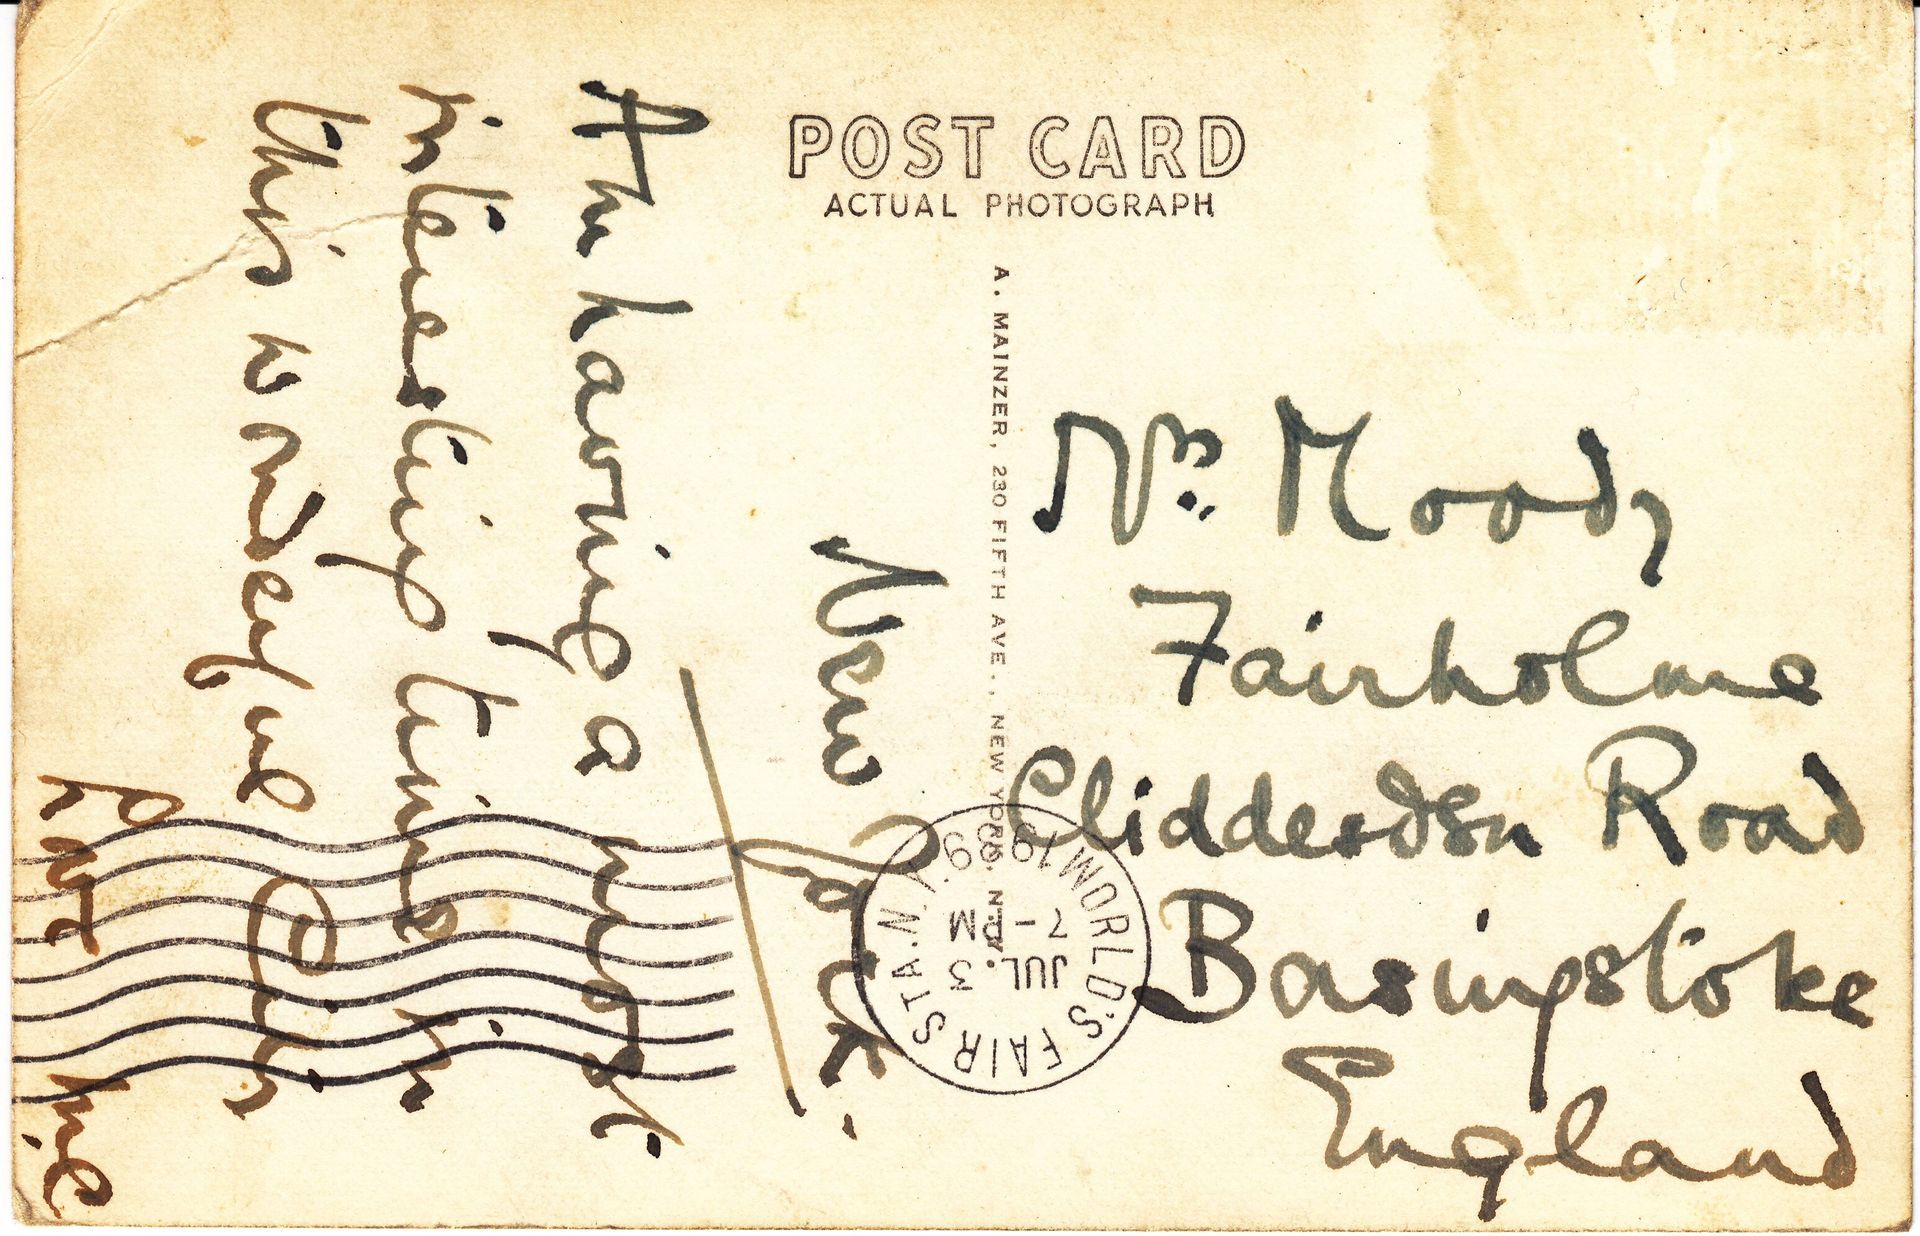 POST CARD
ACTUAL PHOTOGRAPH
A. MAINZER, 230 FIFTH AVE., NEW YORK, N.Y.
WORLD'S FAIR STA. N.Y.
JUL 3
7 - M
1939
New York.
Am having a most
interesting time in
this wonderful City
Mrs. Moody
Fairholme
Cliddesden Road
Basingstoke
England